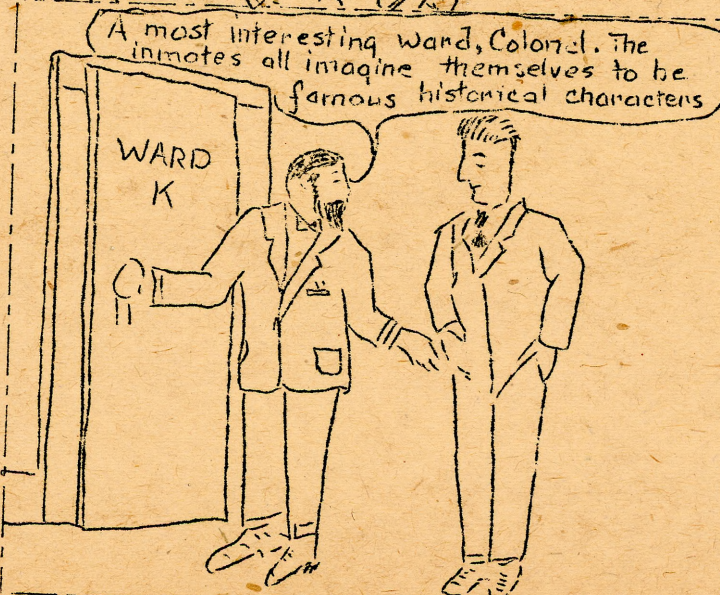 A most interesting ward, Colonel. The
inmates all imagine themselves to be
famous historical characters
WARD
K